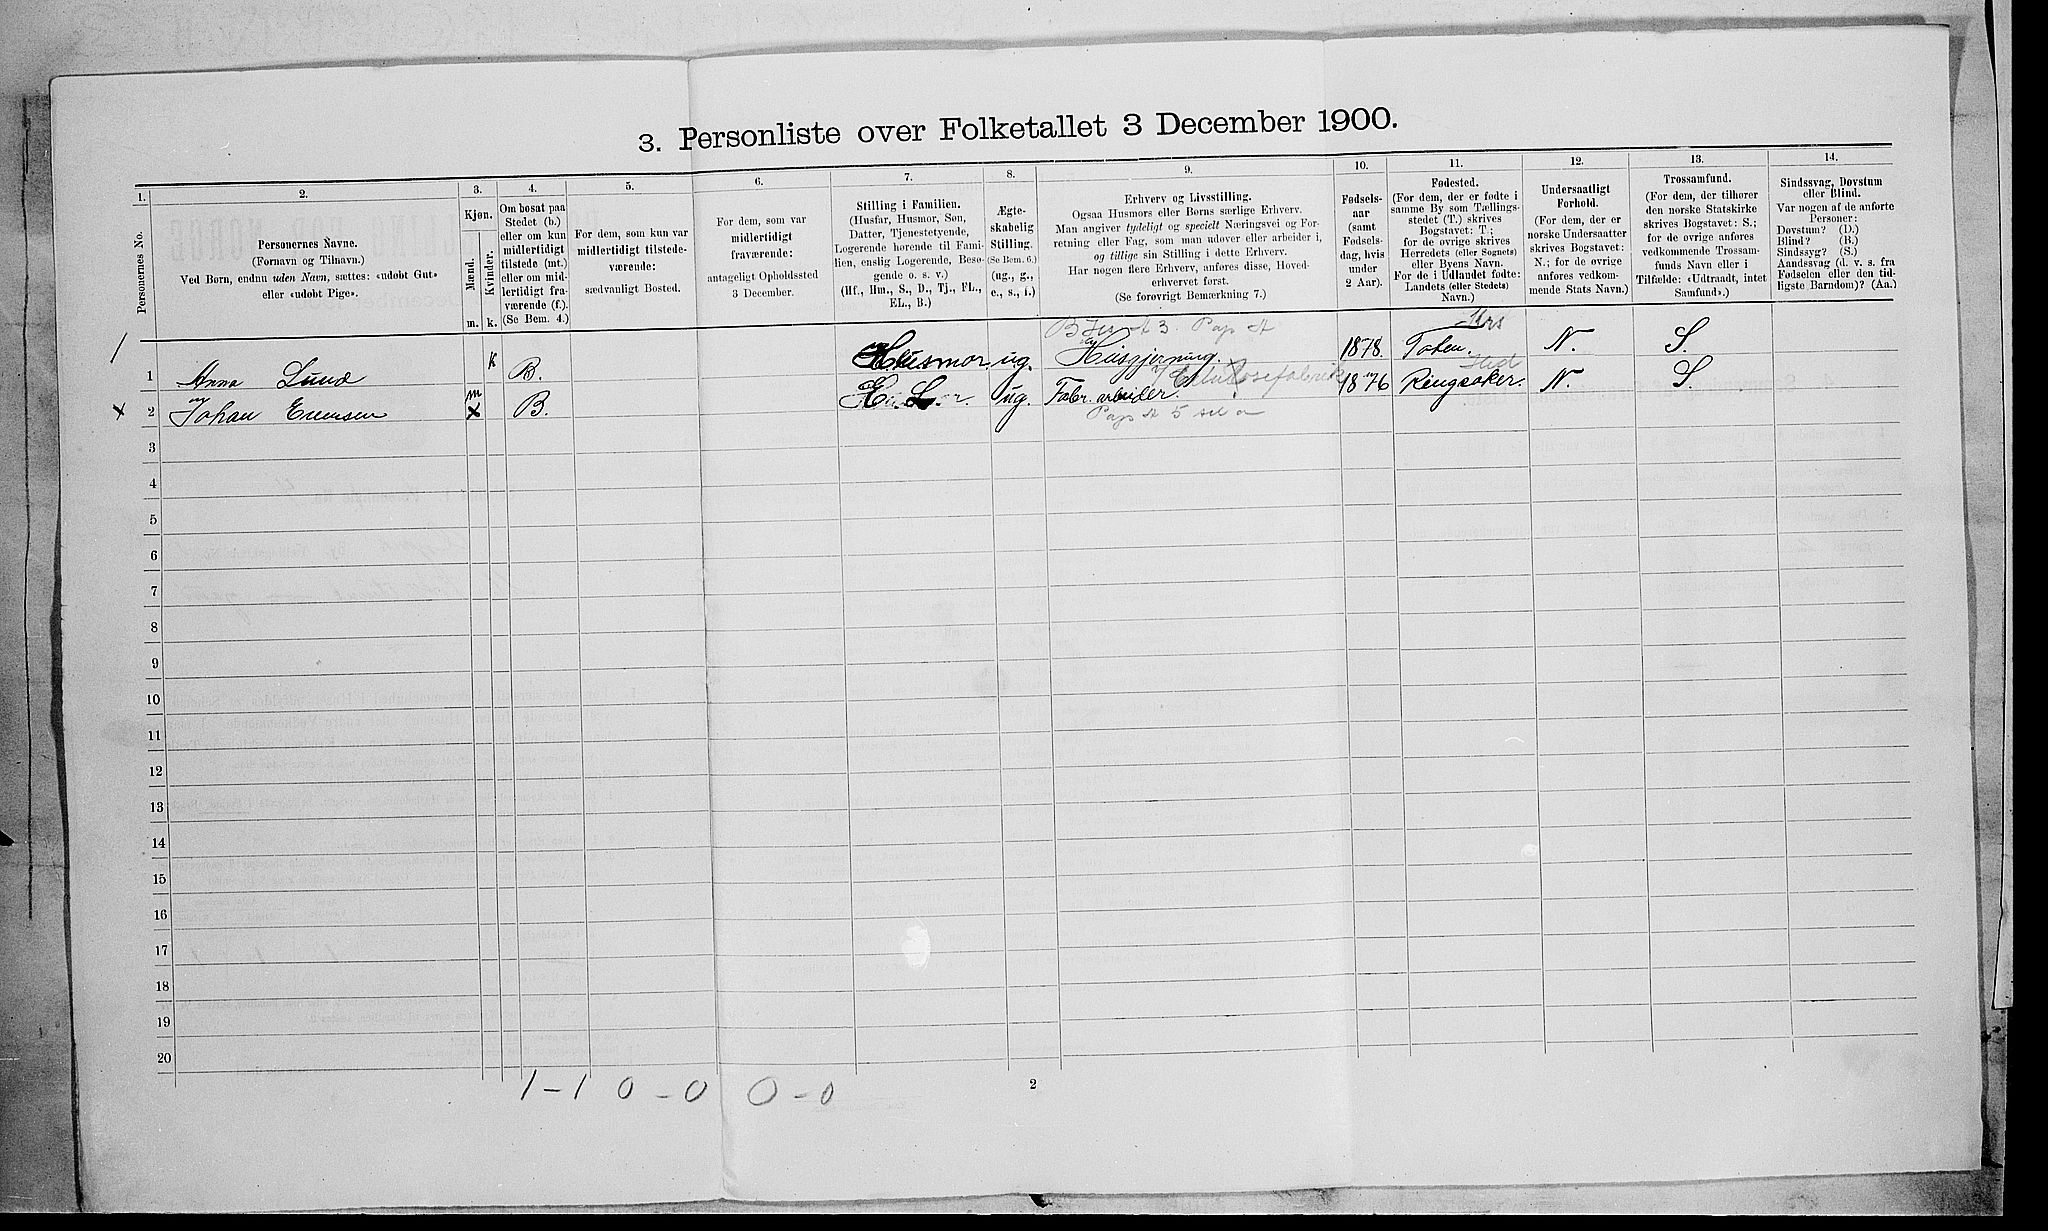 3. Personliste over Folketallet 3 December 1900.
1.
2.
3.
4.
5.
6.
7.
8.
9.
10.
11.
12.
13.
14.
Personernes No.
Personernes Navne.
(Fornavn og Tilnavn.)
Ved Børn, endnu uden Navn, sættes: «udøbt Gut»
eller «udøbt Pige».
Kjøn.
Mænd.
Kvinder.
m.
k.
Om bosat paa
Stedet (b.)
eller om kun
midlertidigt
tilstede (mt.)
eller om mid-
lertidigt fra-
værende (f.).
(Se Bem. 4.)
For dem, som kun var
midlertidigt tilstede-
værende:
sædvanligt Bosted.
For dem, som var
midlertidigt
fraværende:
antageligt Opholdssted
3 December.
Stilling i Familien.
(Husfar, Husmor, Søn,
Datter, Tjenestetyende,
Logerende hørende til Fami-
lien, enslig Logerende, Besø-
gende o. s. v.)
(Hf., Hm., S., D., Tj., FL.,
EL., B.)
Ægte-
skabelig
Stilling.
(Se Bem. 6.)
(ug., g.,
e., s., f.)
Erhverv og Livsstilling.
Ogsaa Husmors eller Børns særlige Erhverv.
Man angiver tydeligt og specielt Næringsvei og For-
retning eller Fag, som man udøver eller arbeider i,
og tillige sin Stilling i dette Erhverv.
Har nogen flere Erhverv, anføres disse, Hoved-
erhvervet først.
(Se forøvrigt Bemærkning 7.)
Fødsels-
aar
(samt
Fødsels-
dag, hvis
under
2 Aar).
Fødested.
(For dem, der er fødte i
samme By som Tællings-
stedet (T.) skrives
Bogstavet: T.;
for de øvrige skrives
Herredets (eller Sognets)
eller Byens Navn.
For de i Udlandet fødte:
Landets (eller Stedets)
Navn.)
Undersaatligt
Forhold.
(For dem, der er
norske Undersaatter
skrives Bogstavet:
N.; for de øvrige
anføres vedkom-
mende Stats Navn.)
Trossamfund.
(For dem, der tilhører
den norske Statskirke
skrives Bogstavet: S.;
for de øvrige anføres
vedkommende Trossam-
funds Navn eller i
Tilfælde: «Udtraadt, intet
Samfund».)
Sindssvag, Døvstum
eller Blind.
Var nogen af de anførte
Personer:
Døvstum? (D.)
Blind? (B.)
Sindssyg? (S.)
Aandssvag (d. v. s. fra
Fødselen eller den tid-
ligste Barndom)? (Aa.)
1 Anna Lund k B. Husmor ug. Husgjerning. 1878. Toten. N. S.
x 2 m x B. L ug. Fabr. arbeider. Cellulosefabrik 1876 Ringsaker. N. S
3
4
5
6
7
8
9
10
11
12
13
14
15
16
17
18
19
20
1-1 0-0 0-0
2